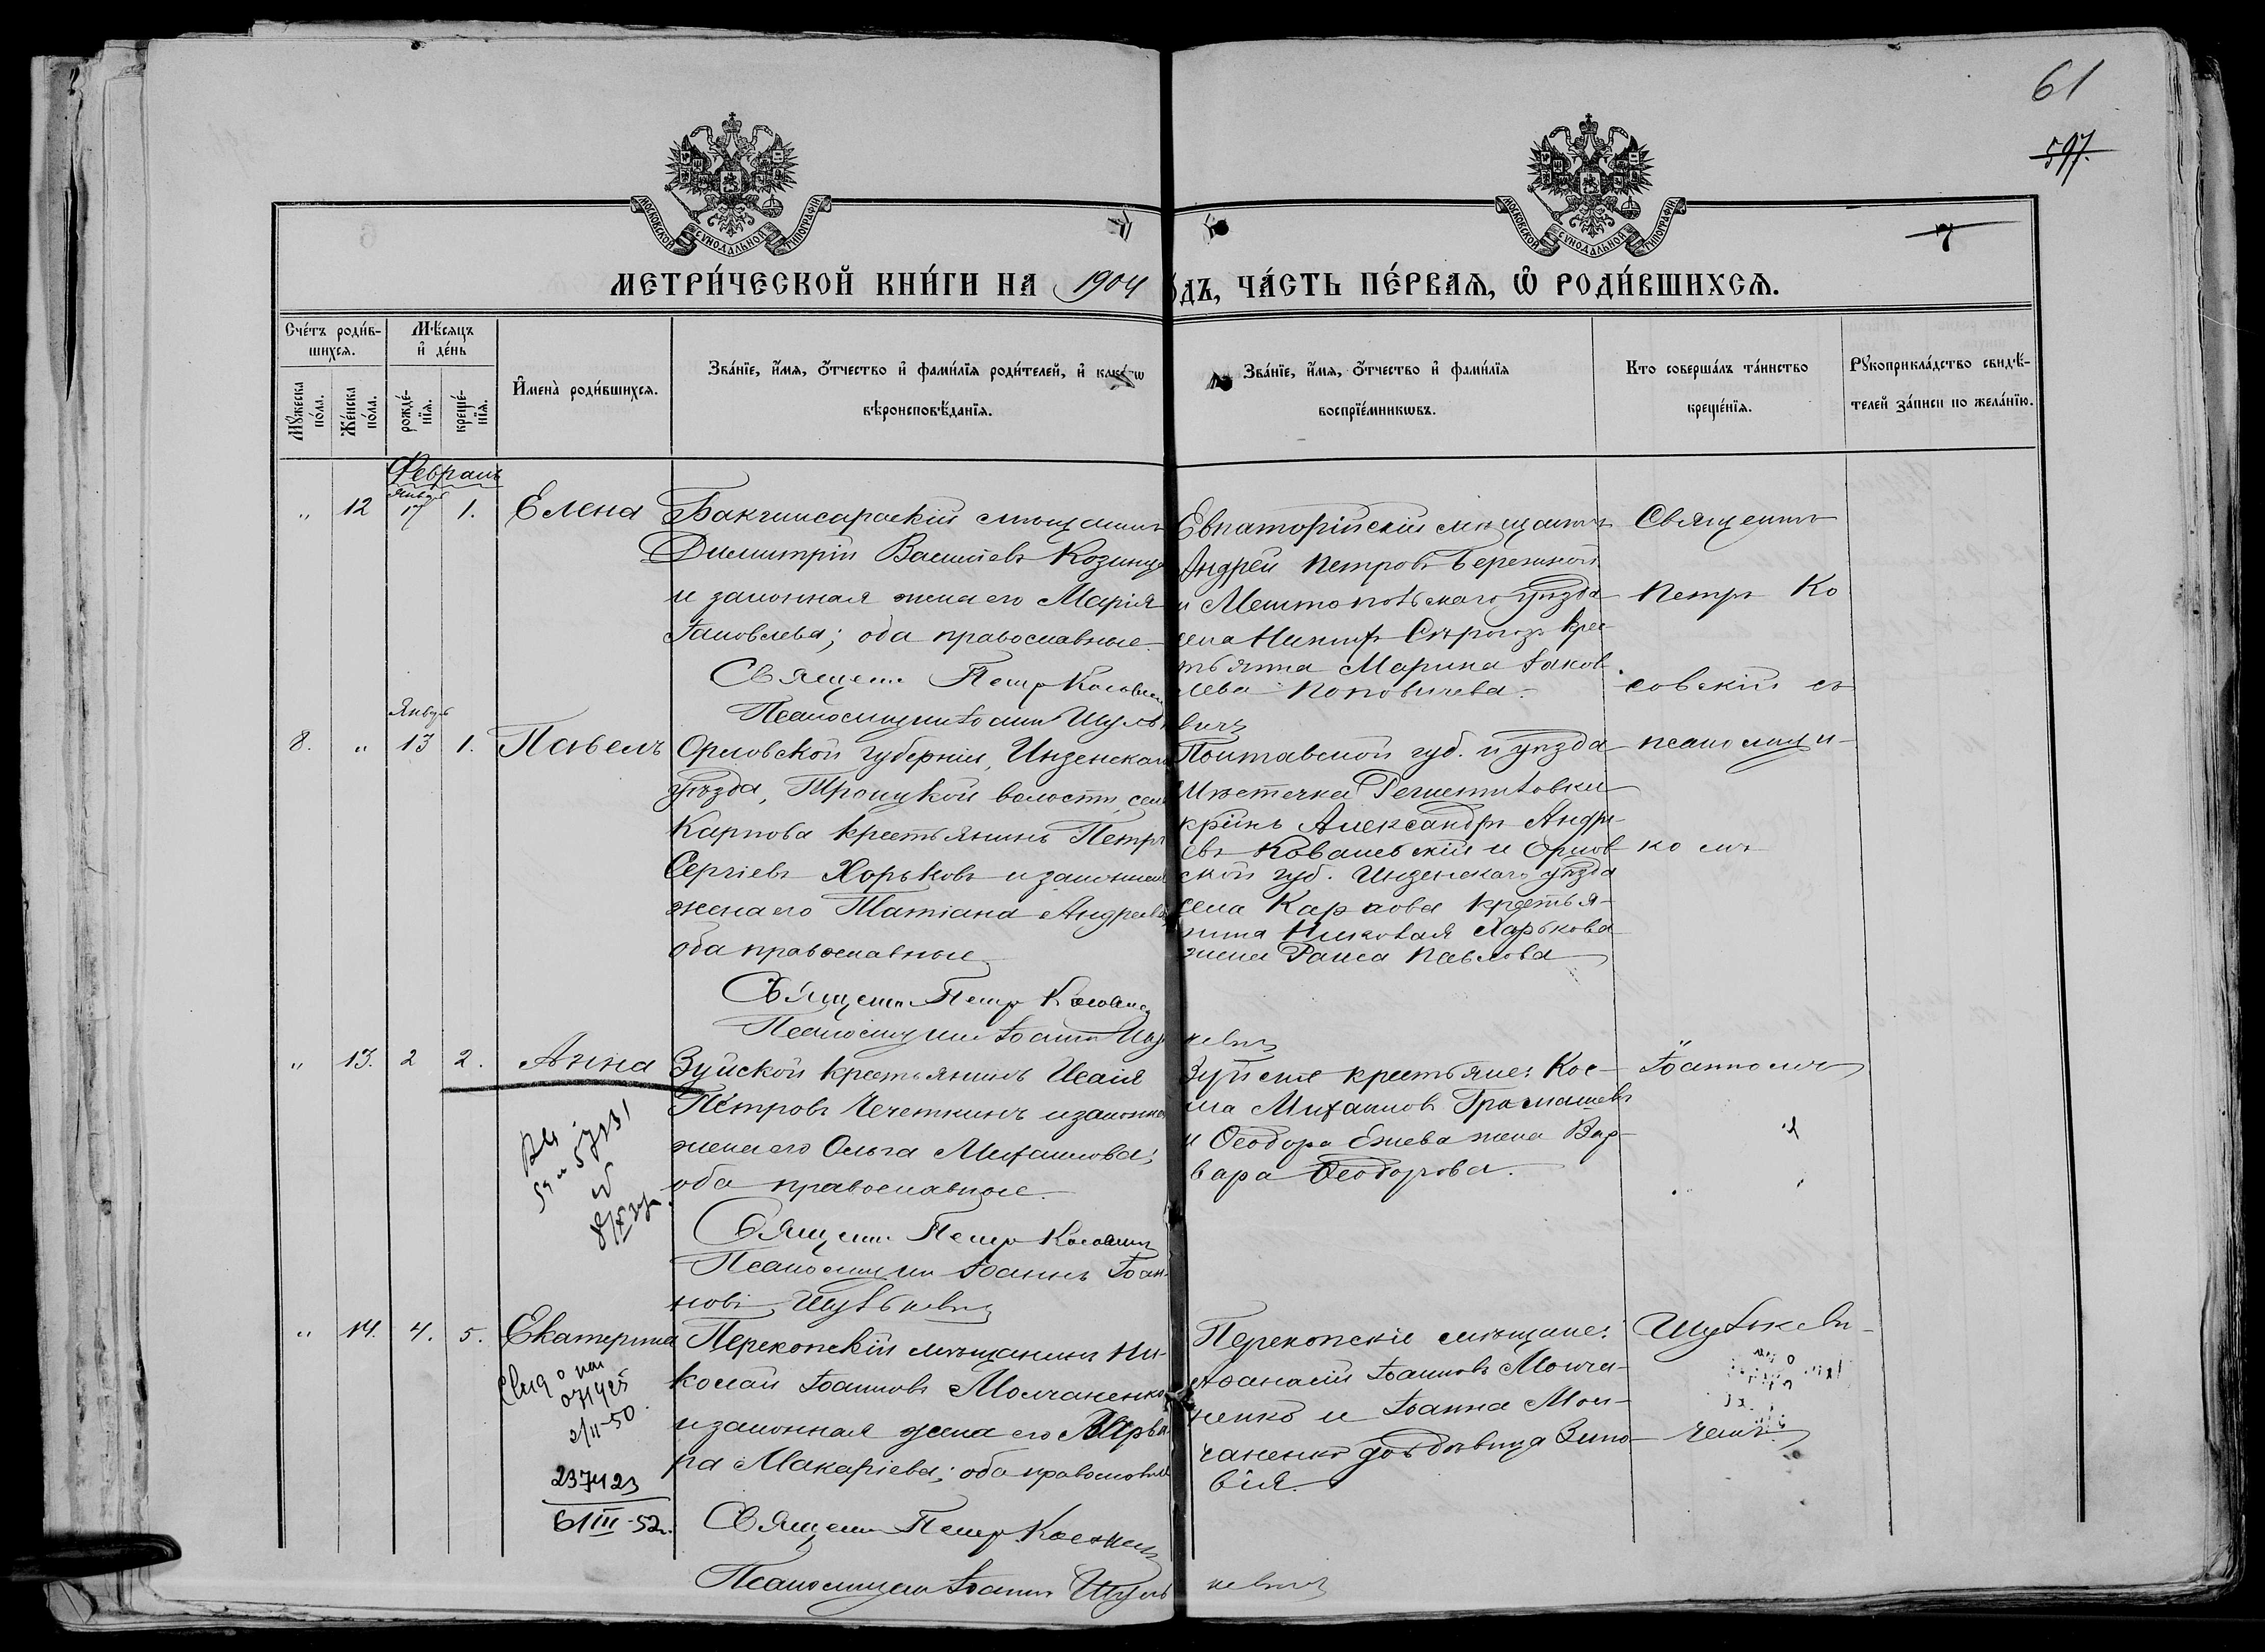 61
597.
7
МОСКОВСКОЙ СѴНОДАЛЬНОЙ ТИПОГРАФІИ
МОСКОВСКОЙ СѴНОДАЛЬНОЙ ТИПОГРАФІИ
МЕТРИ́ЧЕСКОЙ КНИ́ГИ НА 1904 ОДЪ, ЧА́СТЬ ПЕ́РВАѦ, Ѡ҆ РОДИ́ВШИХСѦ.
Сче́тъ роди́вшихсѧ.
Мꙋ́жеска по́ла.
Же́нска по́ла.
Мѣ́сѧцъ и҆ де́нь
рожде́нїѧ.
креще́нїѧ.
И҆мена̀ роди́вшихсѧ.
Зва́нїе, и҆́мѧ, о҆́тчество и҆ фами́лїѧ роди́телей, и҆ како́гѡ вѣроисповѣ́данїѧ.
Зва́нїе, и҆́мѧ, о҆́тчество и҆ фами́лїѧ воспрїе́мникѡвъ.
Кто̀ соверша́лъ та́инство креще́нїѧ.
Рꙋкоприкла́дство свидѣ́телей за́писи по жела́нїю.
Февраль
Январь
„ 12 17 1. Елена
Бакчисарайскій мѣщанинъ
Димитрій Васильевъ Козинце
и законная жена его Марія
Іаковлева; оба православные.
Священ. Петръ Косовск
Псаломщикъ Іоаннъ Шуль
Евпаторійскій мѣщанинъ
Андрей Петровъ Бережной
и Мелитопольскаго уѣзда
села Нижн. Сѣрогозъ крес-
тьянка Марина Іаков
лева Поповичева.
вичъ
Священникъ
Петръ Ко
совскій съ
Январь
8. „ 13 1. Павелъ
Орловской губерніи,
уѣзда, Троицкой волости, села
Карпова крестьянинъ Петръ
Сергіевъ Хорьковъ и законная
жена его Татіана Андреева
оба православные
Священ. Петръ Косовск
Псаломщикъ Іоаннъ Шу
Полтавской губ. и уѣзда
мѣстечка Решетиловки
кр–инъ Александръ Андре-
евъ Ковалевскій и Орлов
ской губ. уѣзда
села Карпова крестья-
нина Николая Харькова
жена Раиса Павлова
кевичъ
псаломщи-
комъ
„ 13. 2 2. Анна
Зуйской крестьянинъ Исаія
Петровъ Чечеткинъ и законная
жена его Ольга Михаилова;
оба православные.
Священ. Петръ Косовскій
Псаломщикъ Іоаннъ Іоан-
новъ Шулькевичъ
Зуйскіе крестьяне: Кос-
ма Михаиловъ Громашевъ
и Ѳеодора Ежева жена Вар-
вара Ѳеодорова.
Іоанномъ
„ 14. 4. 5. Екатерина
2/II-50
237423
6/III-52г.
Перекопскій мѣщанинъ Ни-
колай Іоанновъ Молчаненко
и законная жена его Варва
ра Макаріева; оба православные
Священ. Петръ Косовск
Псаломщикъ Іоаннъ Шуль
Перекопскіе мѣщане:
Аѳанасій Іоанновъ Молча-
ненко и Іоанна Мол-
чаненко вдовица Зино-
вія.
кевичъ
Шулькеви-
чемъ.